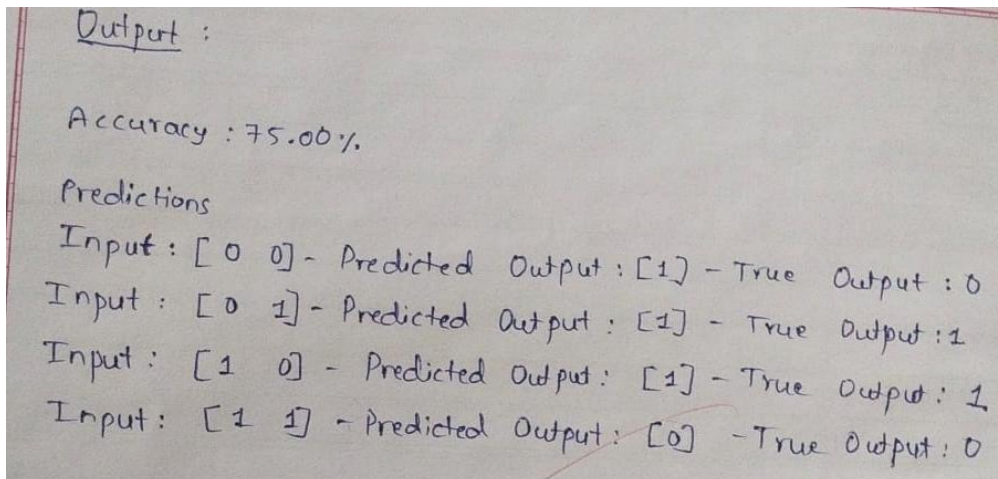 Output :
Accuracy : 75.00%
Predictions
Input : [ 0 0] - Predicted Output : [1] - True Output : 0
Input : [ 0 1] - Predicted Output : [1] - True Output : 1
Input : [1 0] - Predicted Output : [1] - True Output : 1
Input : [1 1] - Predicted Output : [0] - True Output : 0